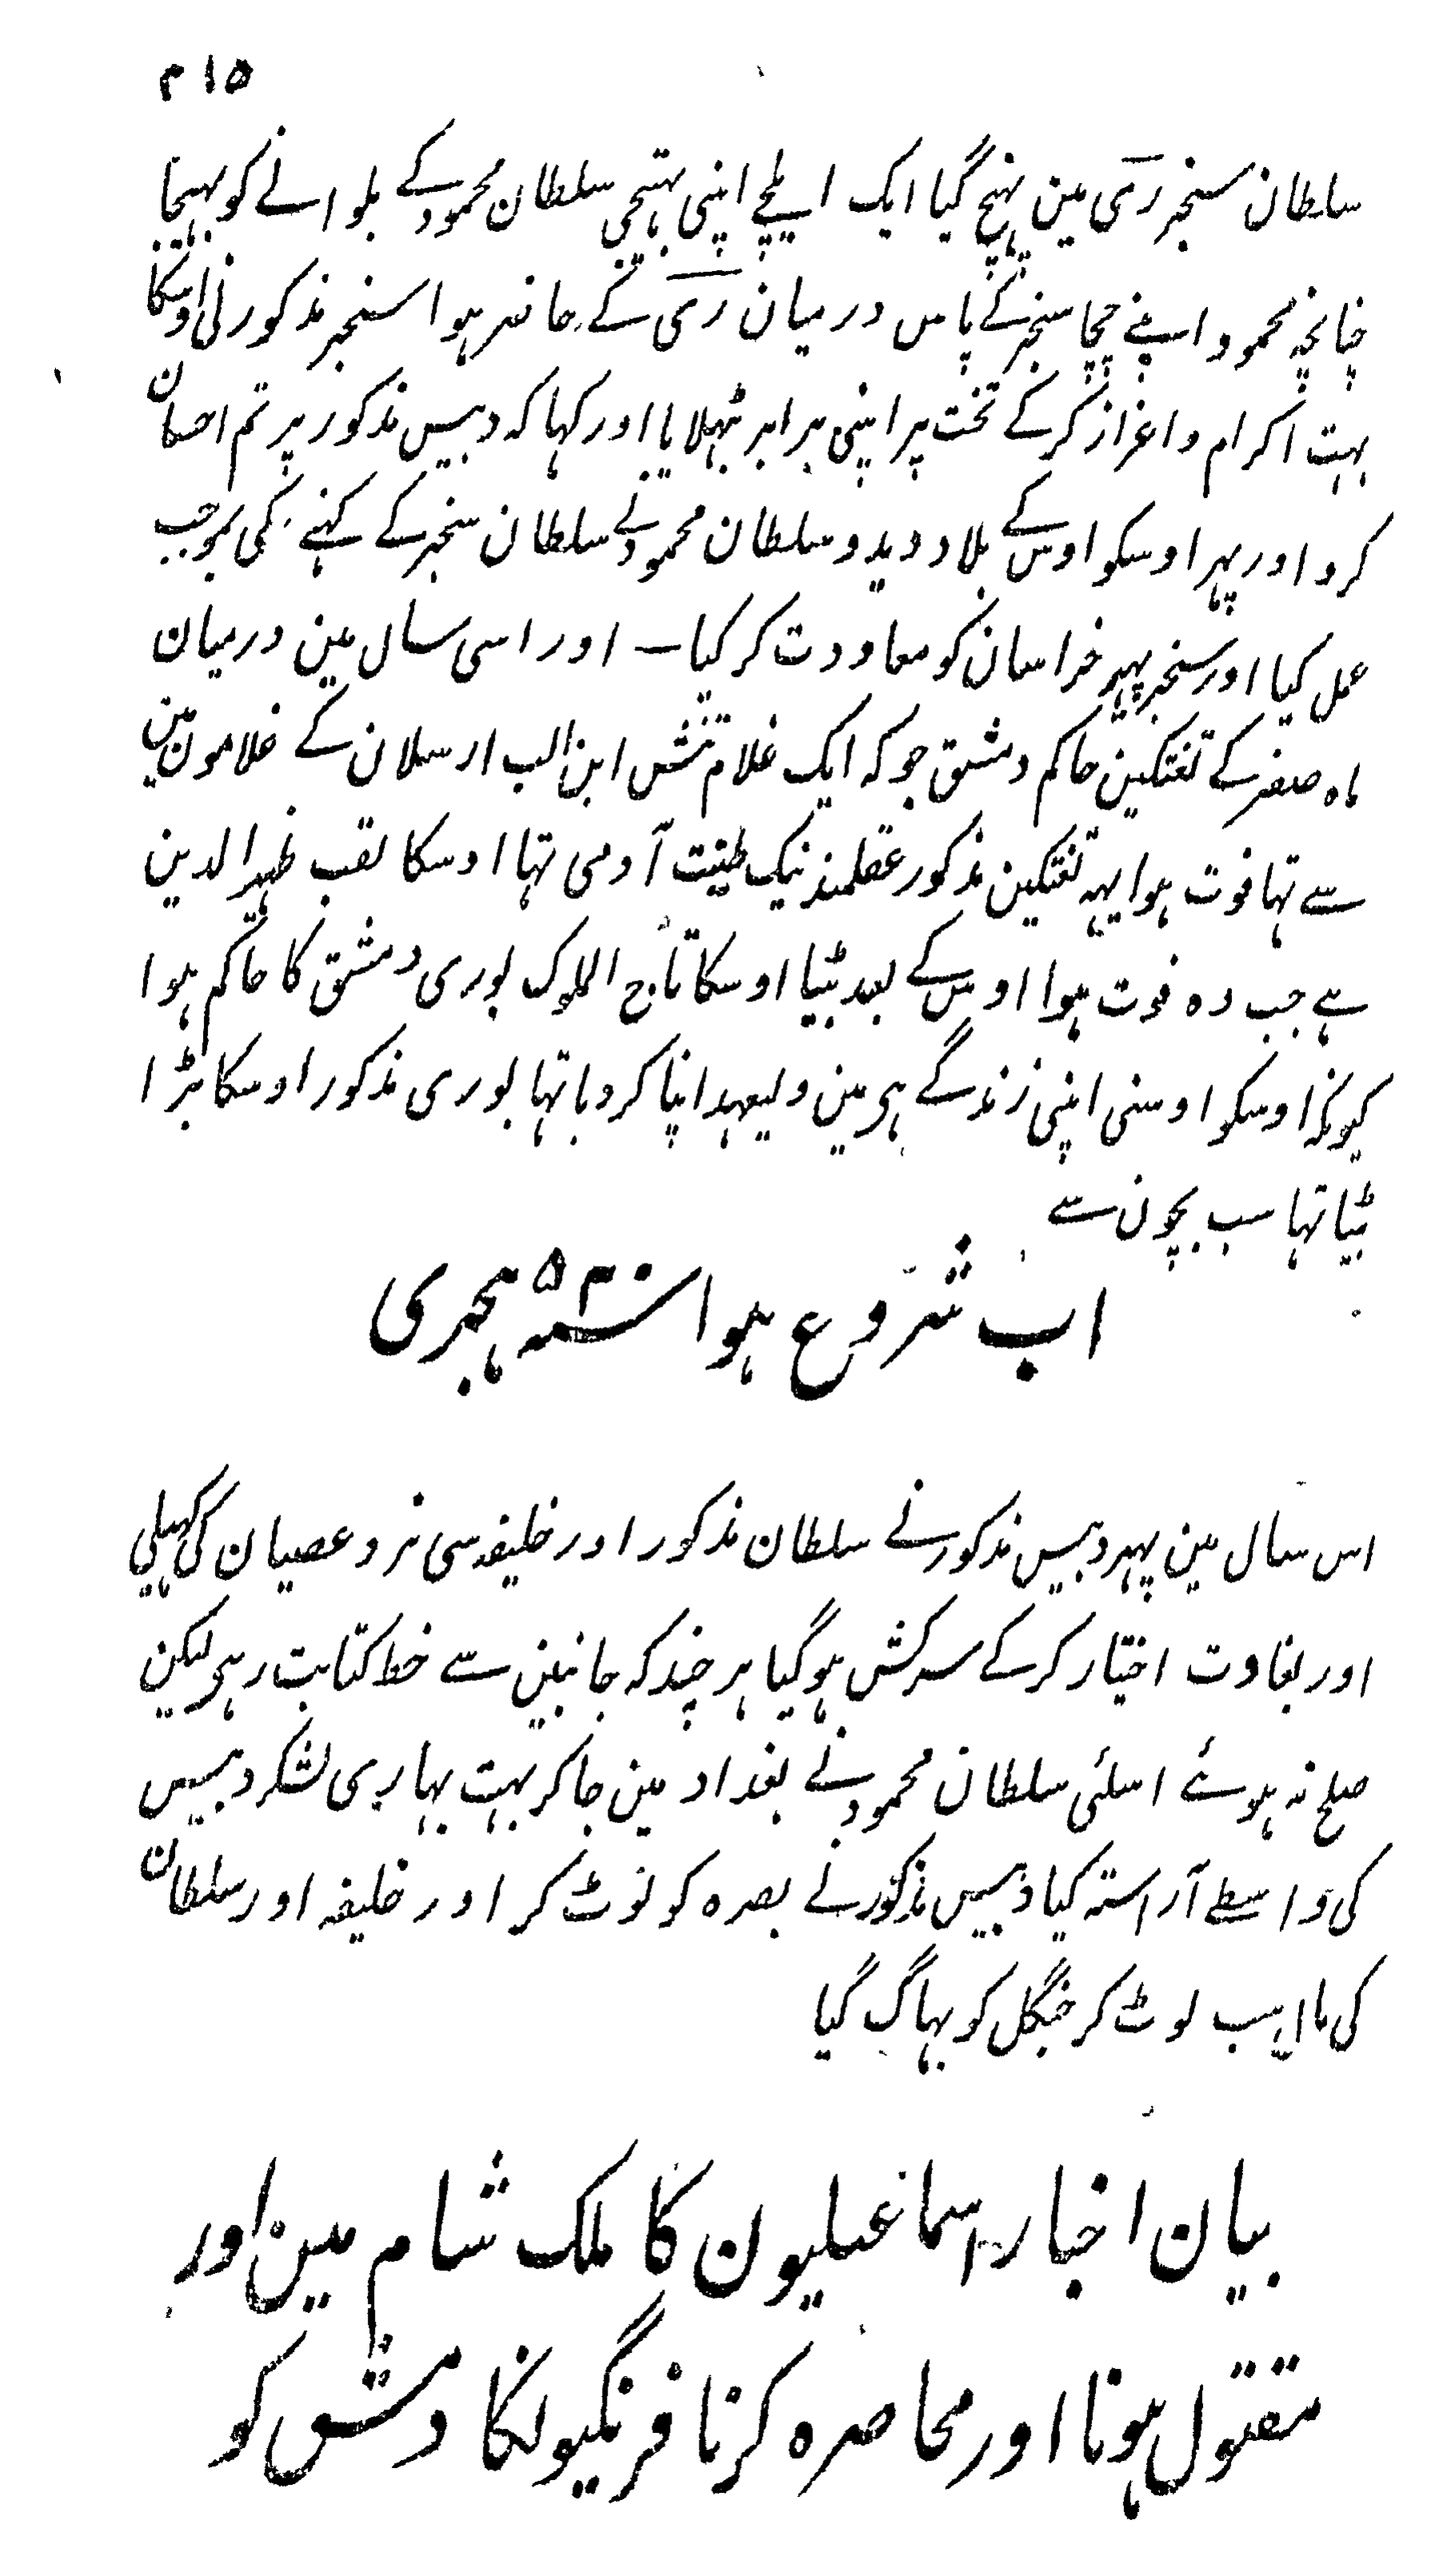 ۴۱۵
سلطان سنجر ری مین پہنچ گیا ایک ایلچے اپنی بہتیجی سلطان محمود کے بلوانے کو بہیجا
چنانچہ محمود اپنے چچا سنجر کے پاس درمیان ری کے حاضر ہوا سنجر مذکور نی اوسکا
بہت اکرام و اعزاز کر کے تخت پر اپنی برابر بٹہلایا اور کہا کہ دبیس مذکور پر تم احسان
کرو اور پہر اوسکو اوس کے بلاد دیدو سلطان محمود نے سلطان سنجر کے کہنے کی بموجب
عمل کیا اور سنجر پہر خراسان کو معاودت کر گیا ـ اور اسی سال مین درمیان
ماہ صفر کے تغتکین حاکم دمشق جو کہ ایک غلام تتش ابن الب ارسلان کے غلامون مین
سے تہا فوت ہوا یہہ تغتکین مذکور عقلمند نیک طینت آدمی تہا اوسکا لقب ظہیر الدین
ہے جب وہ فوت ہوا اوس کے بعد بیٹا اوسکا تاج الملوک بوری دمشق کا حاکم ہوا
کیونکہ اوسکو اوسنی اپنی زندگے ہی مین ولیعہد اپنا کر دیا تہا بوری مذکور اوسکا بڑا
بیٹا تہا سب بچون سے
اب شروع ہوا سنہ ۵۲۳ ہجری
اس سال مین پہر دبیس مذکور نے سلطان مذکور اور خلیفہ سی نرد عصیان کی کہیلی
اور بغاوت اختیار کر کے سرکش ہو گیا ہر چند کہ جانبین سے خط کتابت رہی لیکن
صلح نہ ہوئے اسلئی سلطان محمود نے بغداد مین جا کر بہت بہاری لشکر دبیس
کی واسطے آراستہ کیا دبیس مذکور نے بصرہ کو لوٹ کر اور خلیفہ اور سلطان
کی مال سب لوٹ کر جنگل کو بہاگ گیا
بیان اخبار اسماعیلیون کا ملک شام مین اور
مقتول ہونا اور محاصرہ کرنا فرنگیونکا دمشق کو